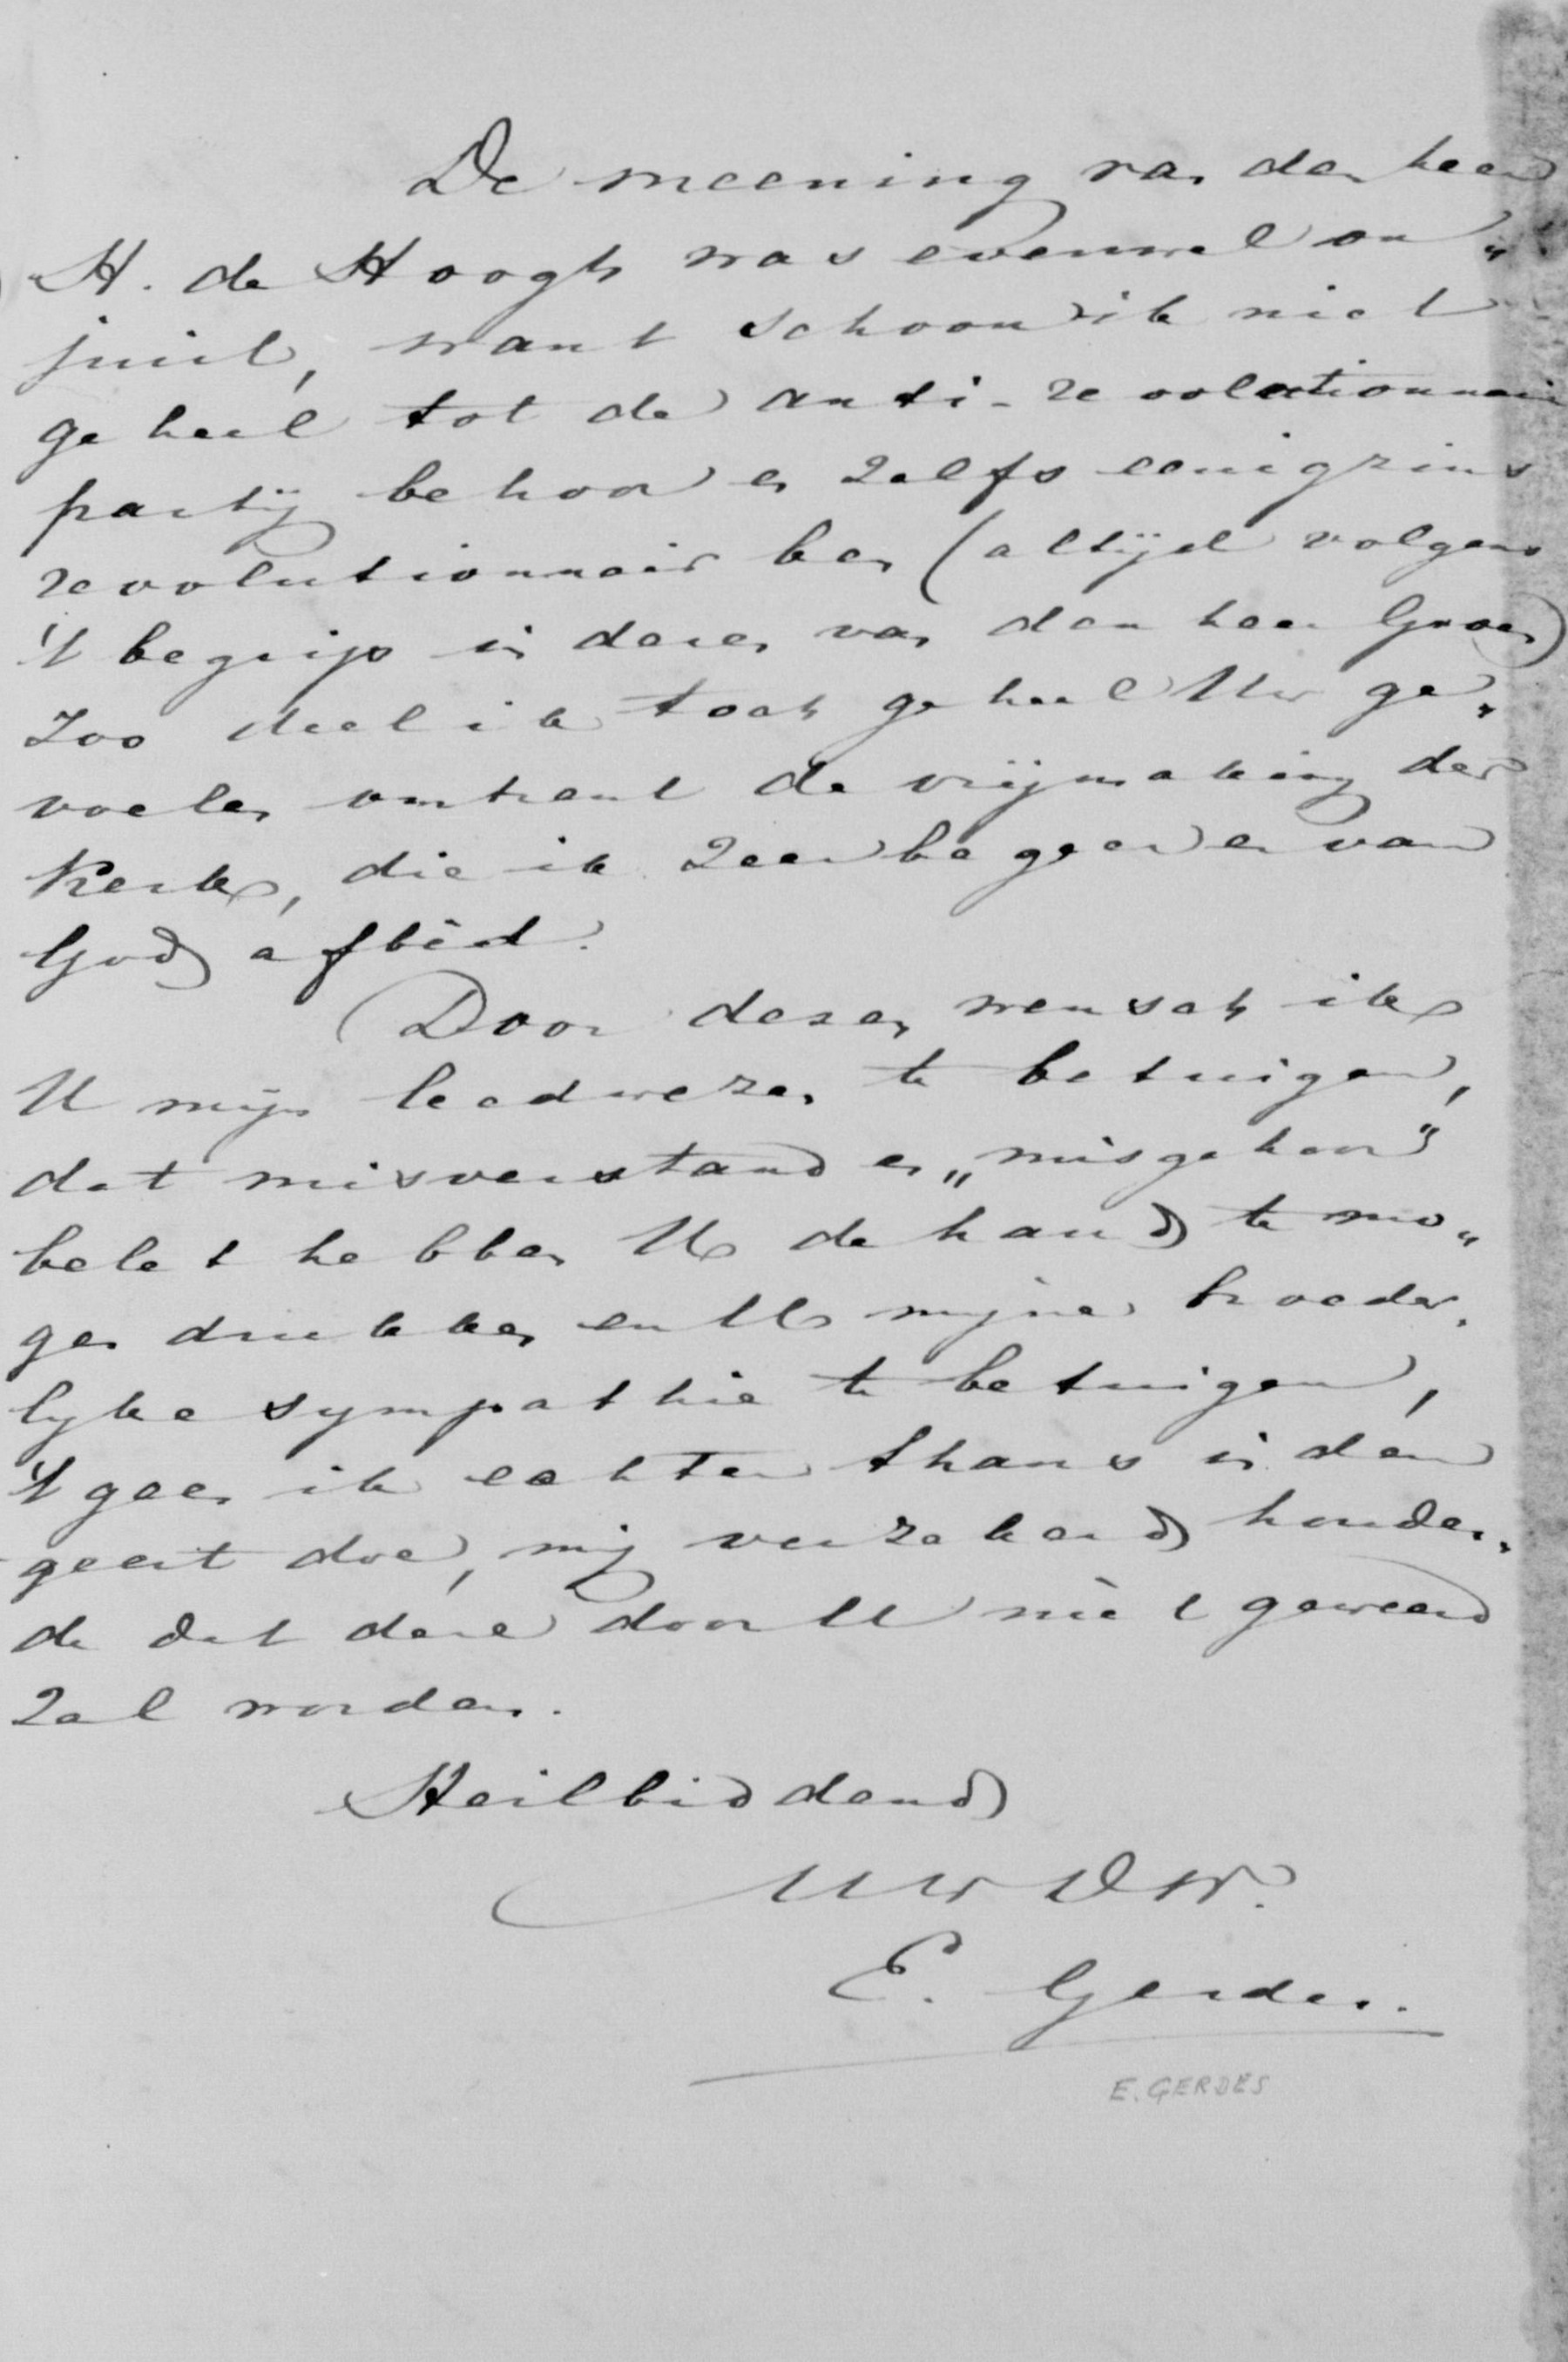 De meening van den heer
H. de Hoogh was evenwel on„
juist, want schoon ik niet
geheel tot de anti-revolutionnair
partij behoor en zelfs eenigzins
revolutionnair ben (altijd volgens
't begrip in dezen van den heer Groen)
Zoo deel ik toch geheel Uw ge„
voelen omtrent de vrijmaking der
Kerk, die ik zeer begeer en van
God afbid.
Door dezen wensch ik
U mijn leedwezen te betuigen,
dat misverstand en „misgehoor"
belet hebben U de hand te mo„
gen drukken en U mijne broeder„
lyke sympathie te betuigen,
't geen ik echter thans in den
geest doe, mij verzekerd houden„
de dat deze door U niet geweerd
zal worden.
Heilbiddend
Uw DW.
E. Gerdes.
E. GERDES